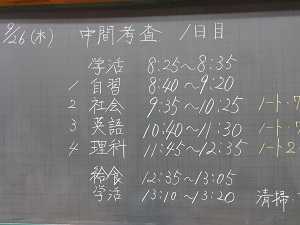 9/26(木) 中間考査 1日目
学活 8:25～8:35
1 自習 8:40～9:20
2 社会 9:35～10:25 ノート・
3 英語 10:40～11:30 ノート・
4 理科 11:45～12:35 ノート2
給食 12:35～13:05
学活 13:10～13:20 清掃・